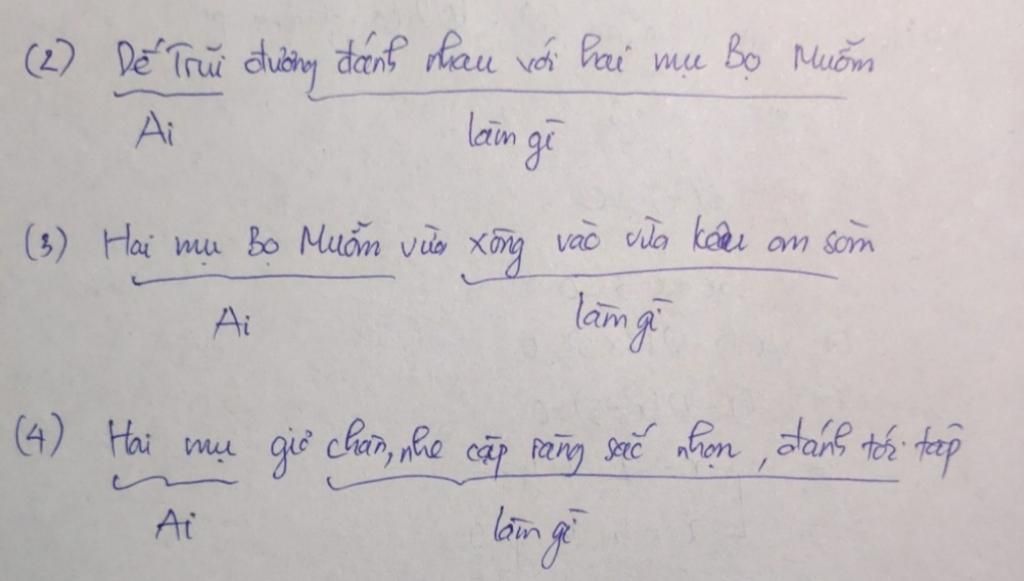 (2) Dế Trũi đương đánh nhau với hai mụ Bọ Muỗm
Ai làm gì
(3) Hai mụ Bọ Muỗm vừa xông vào vừa kêu om sòm
Ai làm gì
(4) Hai mụ giơ chân, nhe cặp răng sắc nhọn, đánh tới tấp
Ai làm gì